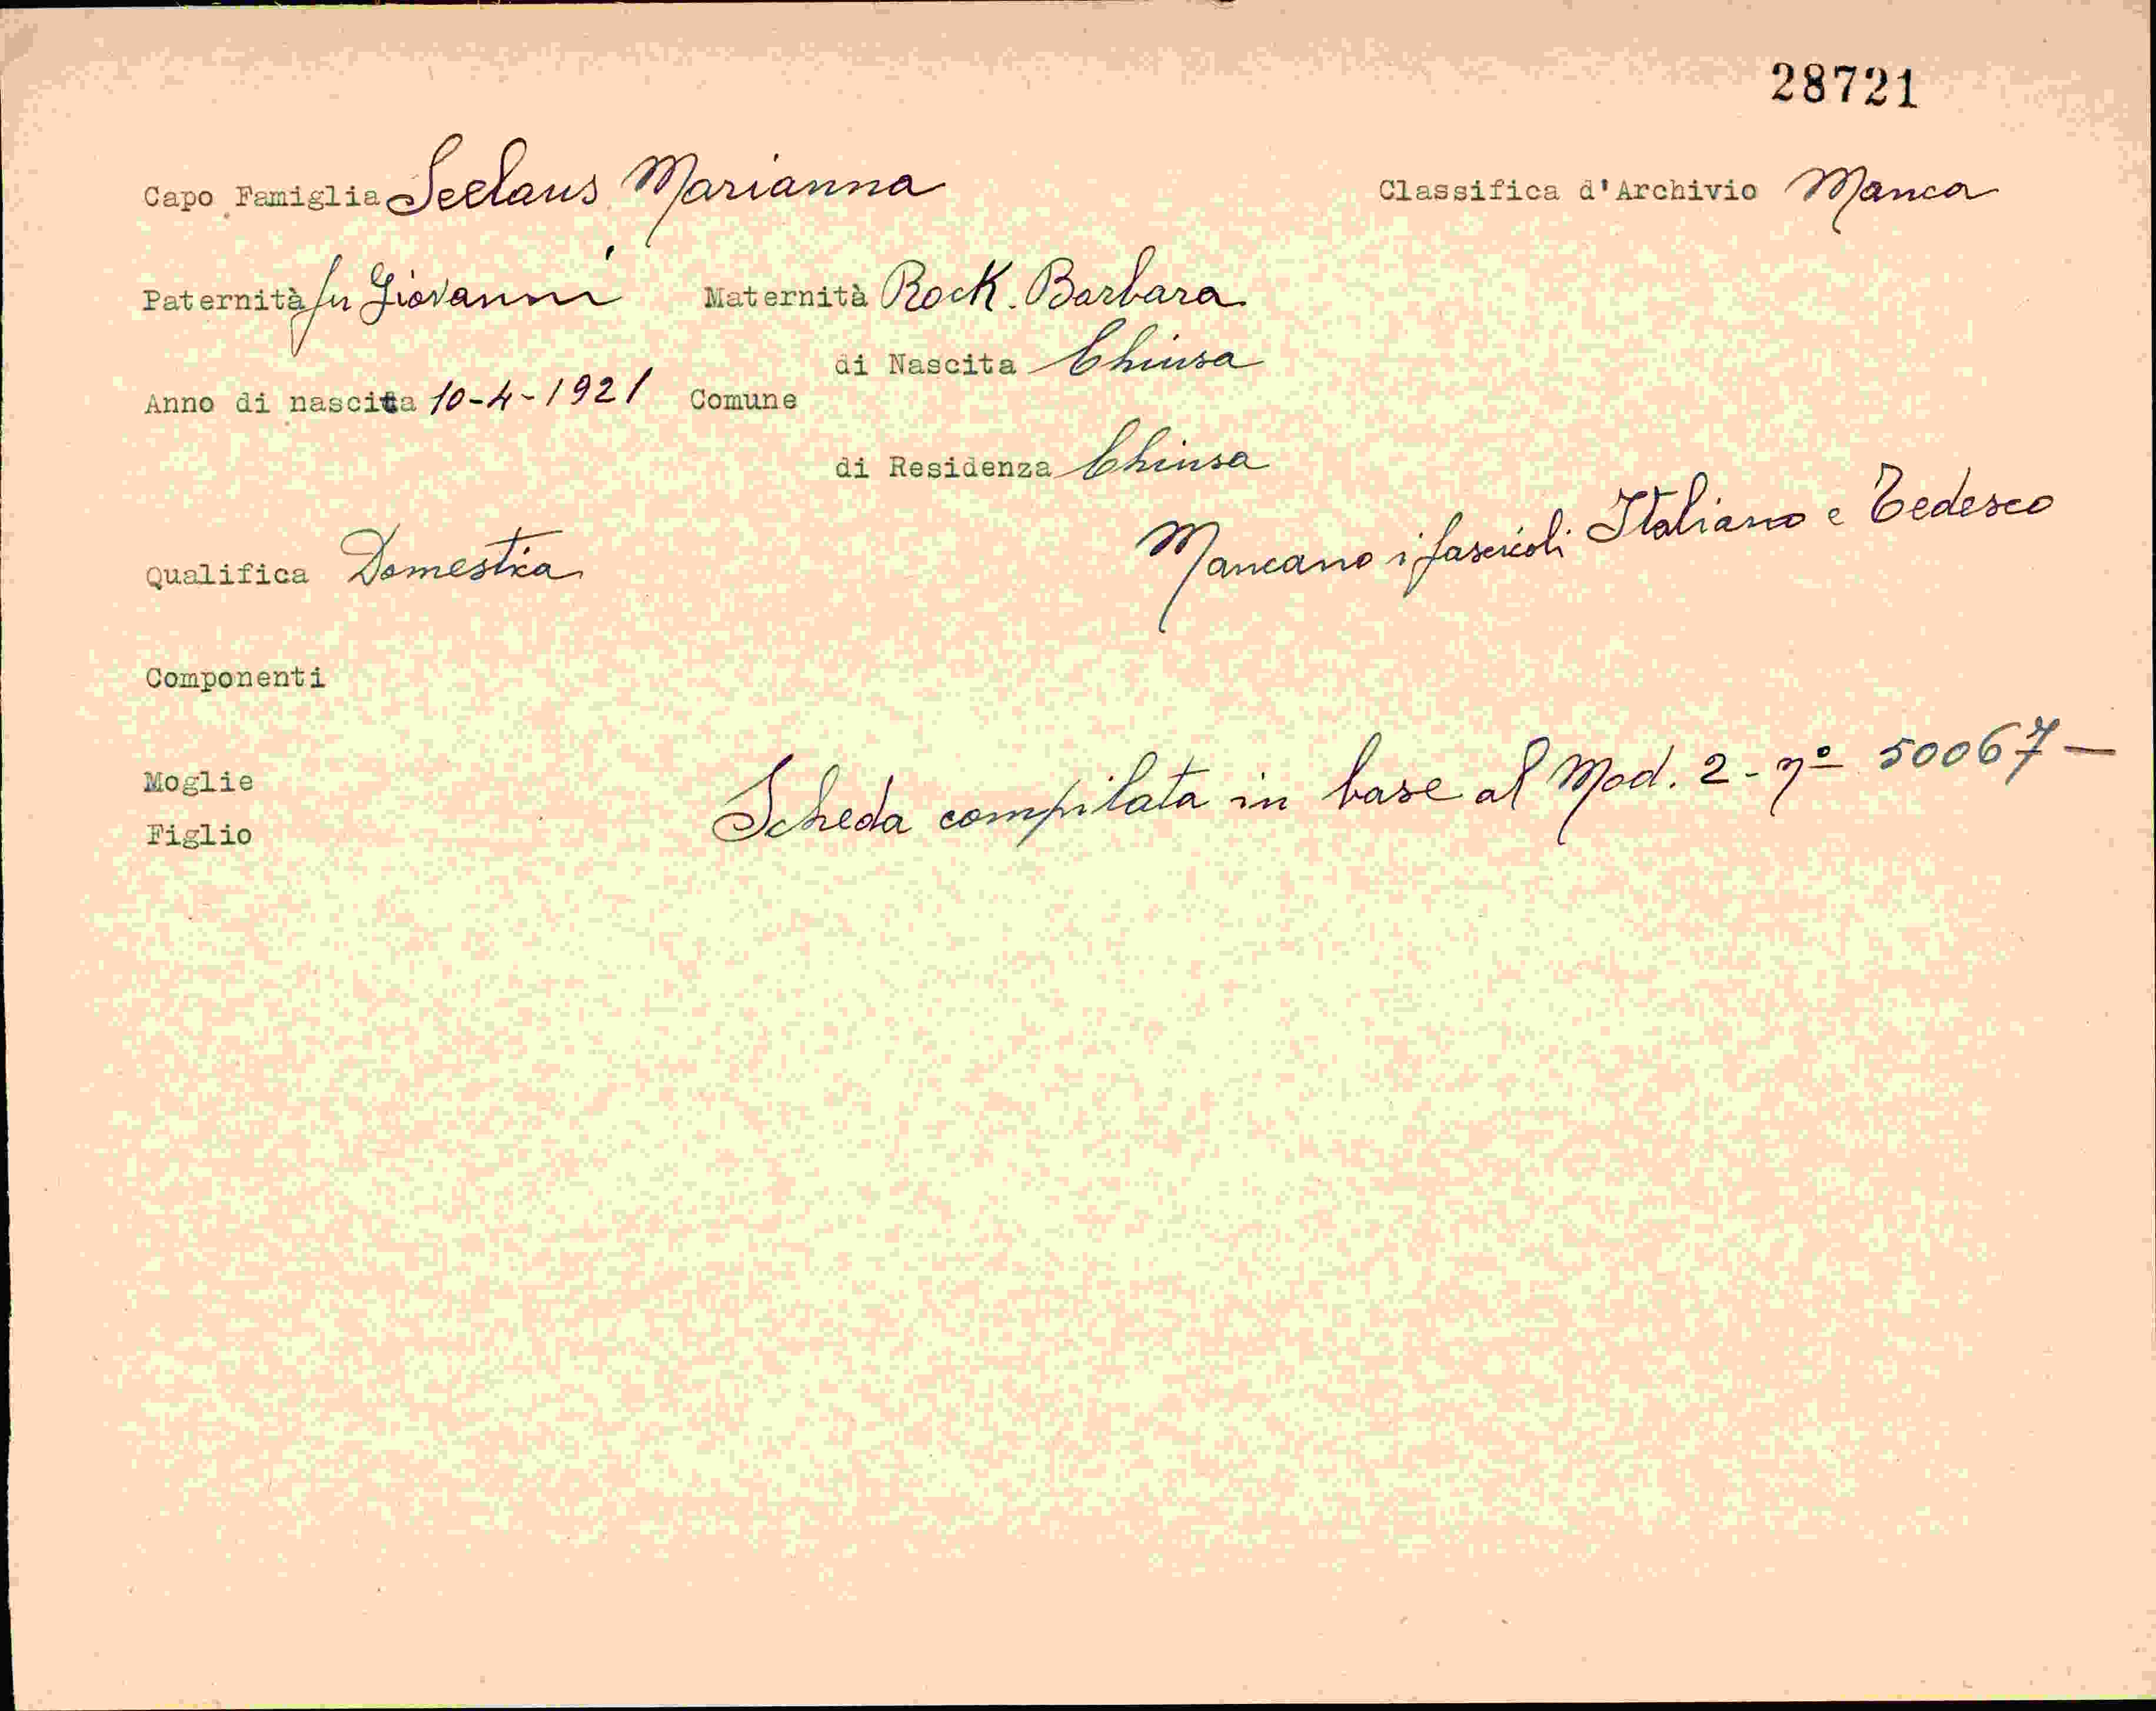 28721
Capo Famiglia Seelaus Marianna Classifica d'Archivio Manca
Paternità fu Giovanni Maternità Rock Barbara
di Nascita Chiusa
Anno di nascita 10-4-1921 Comune
di Residenza Chiusa
Mancano i fascicoli Italiano e Tedesco
Qualifica Domestica
Componenti
Scheda compilata in base al Mod. 2 - nº 50067 —
Moglie
Figlio